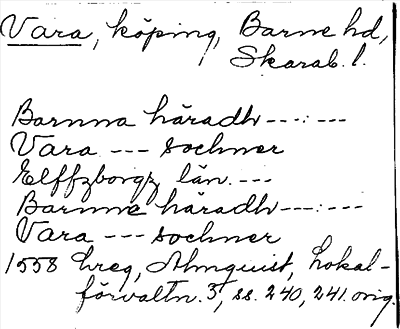 Vara, köping, Barne hd,
Skarab. l.
Barnna häradh ---:---
Vara --- sochner
Elffzborgz län. ---
Barnne häradh ---:---
Vara --- sochner
1558 hreg, Almquist, Lokal-
förvaltn. 3, ss. 240, 241. orig.